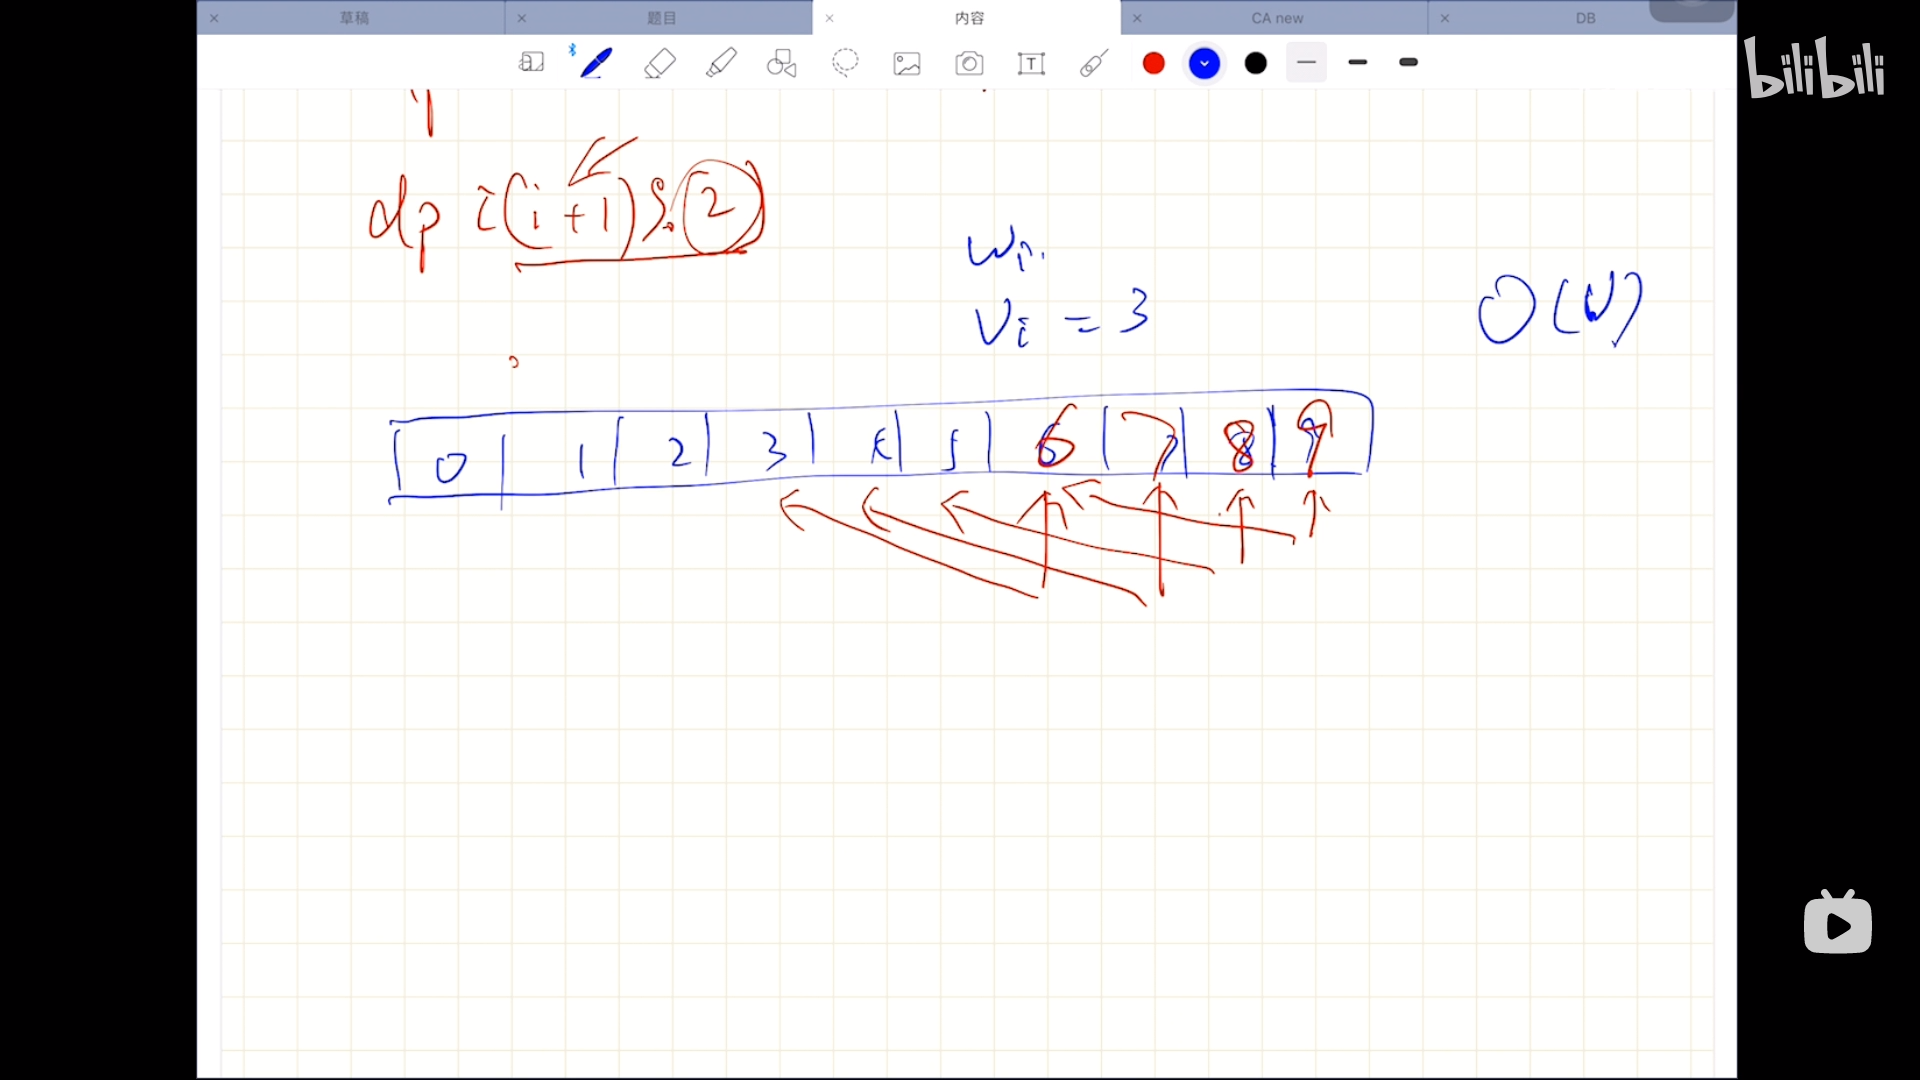 草稿 题目 内容 CA new DB
bilibili
T
dp i(i+1)%2
wi
vi = 3
0 1 2 3 4 5 6 7 8 9